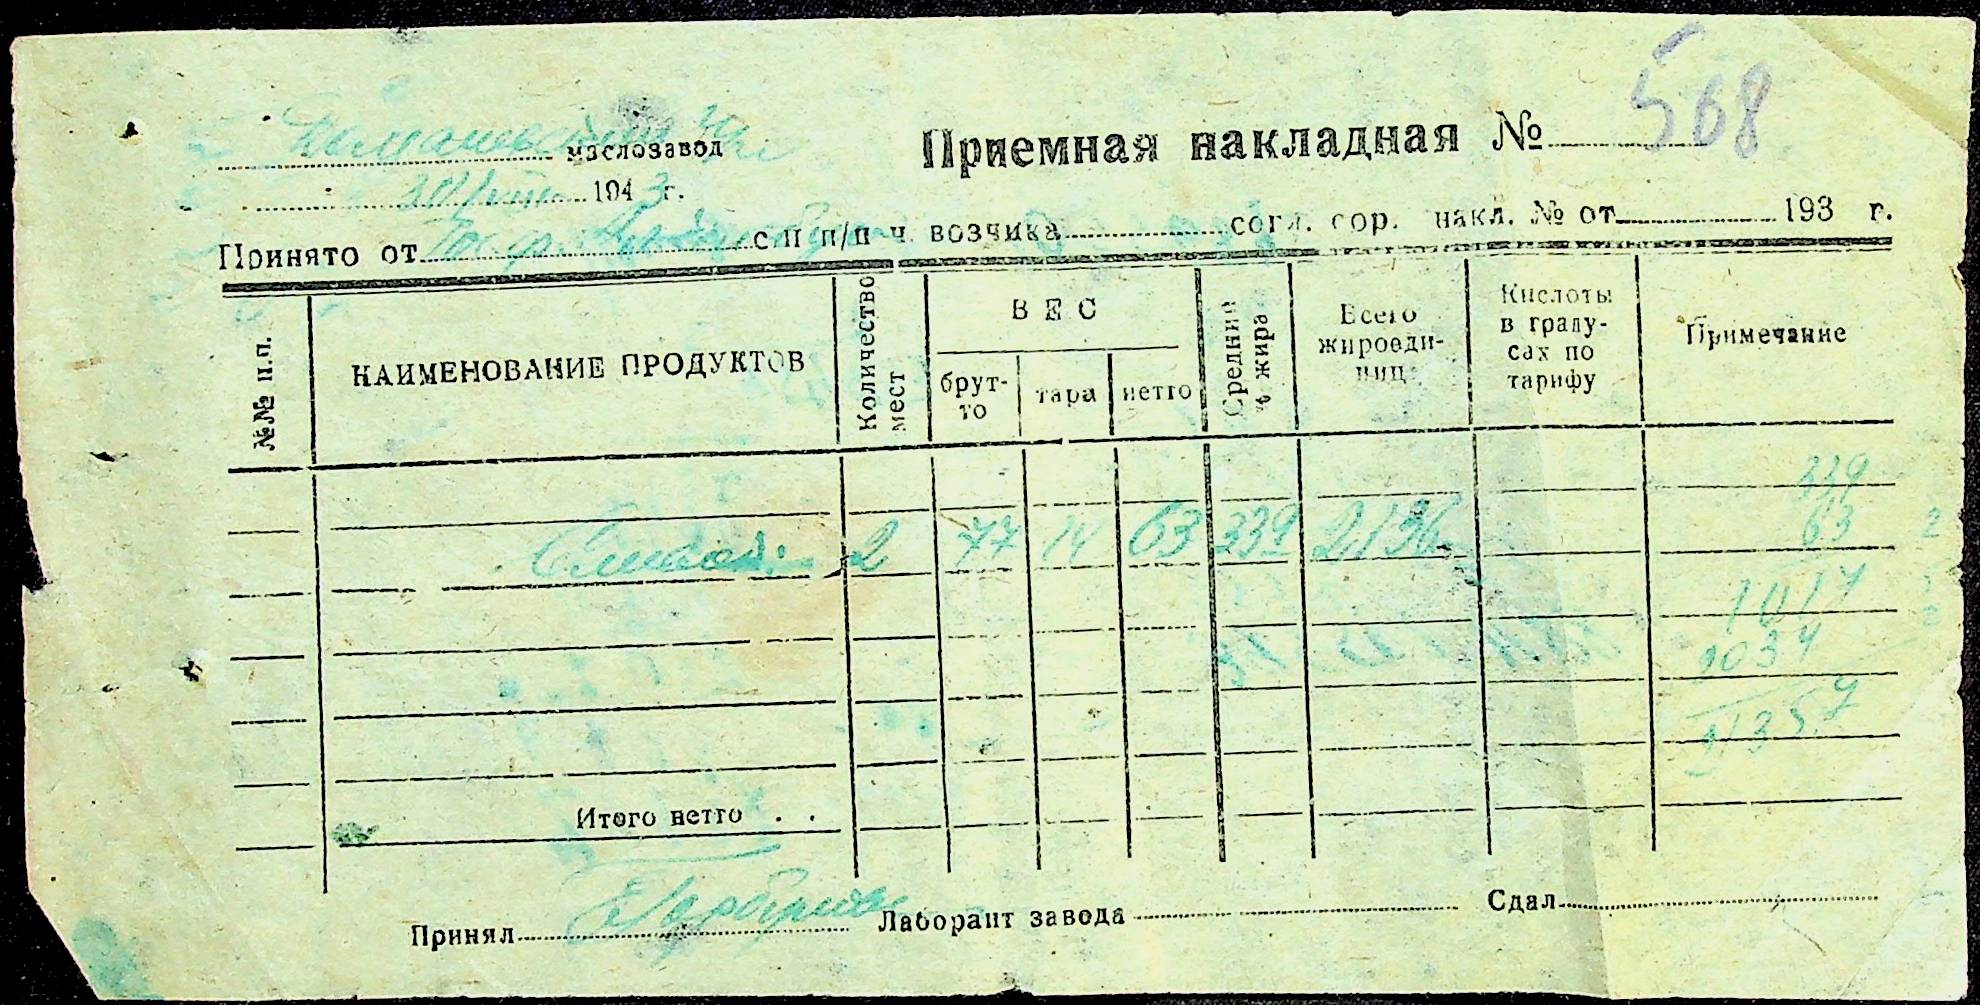 маслозавод
Приемная накладная № 568
30/VIII 1943 г.
Принято от с п п/п ч. возчика согл. сор. накл. № от 193 г.
№№ п.п.
НАИМЕНОВАНИЕ ПРОДУКТОВ
Количество мест
ВЕС
брут-
то
тара
нетто
Средний % жира
Всего
жироеди-
ниц
Кислоты
в граду-
сах по
тарифу
Примечание
339
Сливок: 2 77 14 63 339 2136
63
1017
2034
21357
Итого нетто . .
Принял Лаборант завода Сдал